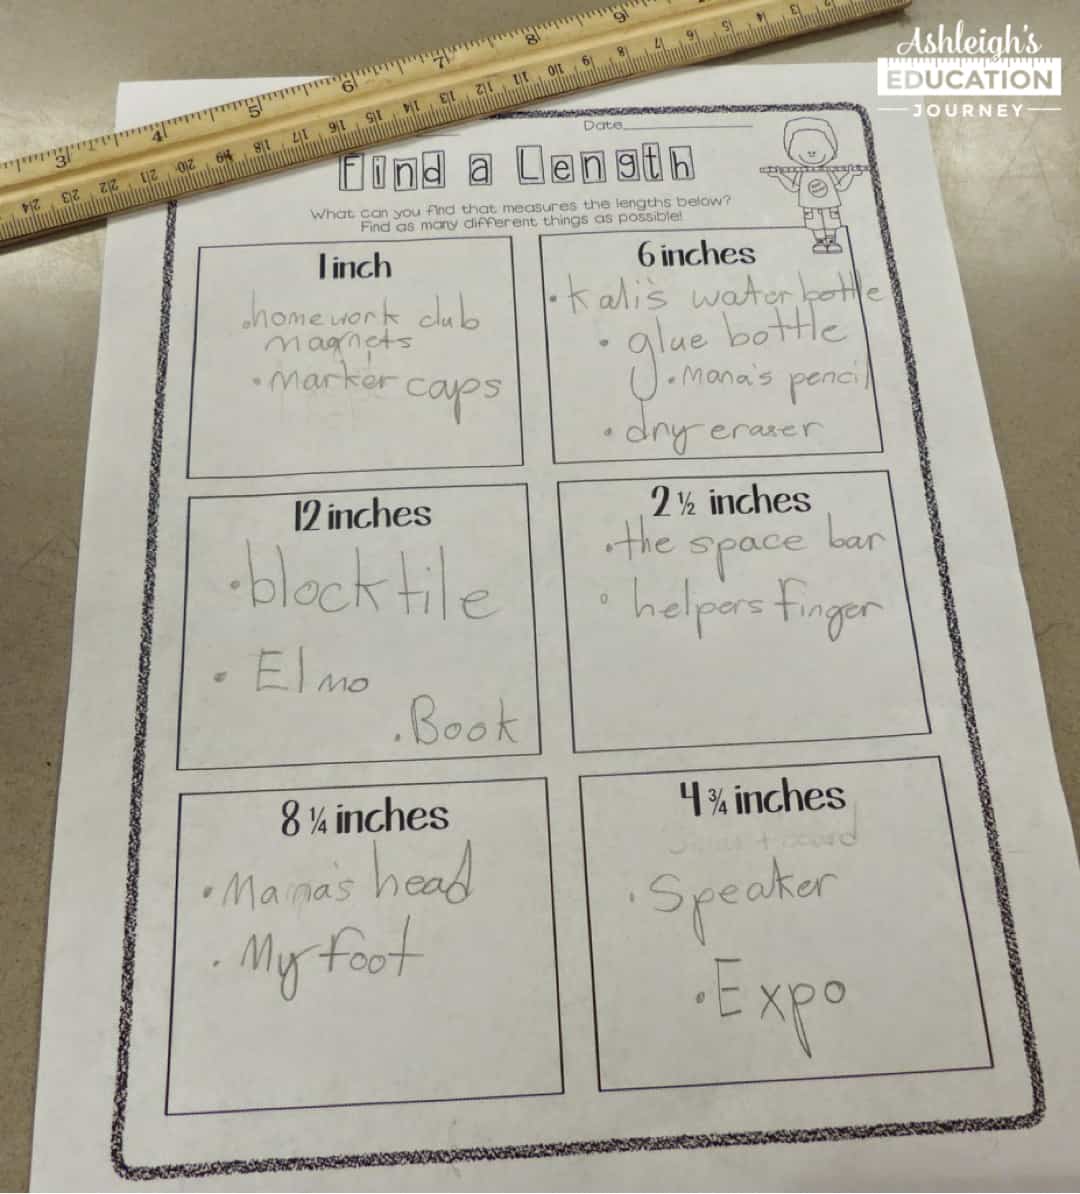 Ashleigh's
EDUCATION
JOURNEY
3 4 5 6 7 8 9
24 23 22 21 20 19 18 17 16 15 14 13 12 11 10 9 8 7 6 5 4 3
Date
Find a Length
What can you find that measures the lengths below?
Find as many different things as possible!
1 inch
•homework club
magnets
•marker caps
6 inches
•Kali's water bottle
•glue bottle
•Mana's pencil
•dry eraser
12 inches
•block tile
•Elmo
•Book
2 ½ inches
•the space bar
•helpers finger
8 ¼ inches
•Mama's head
•My foot
4 ¾ inches
•Speaker
•Expo